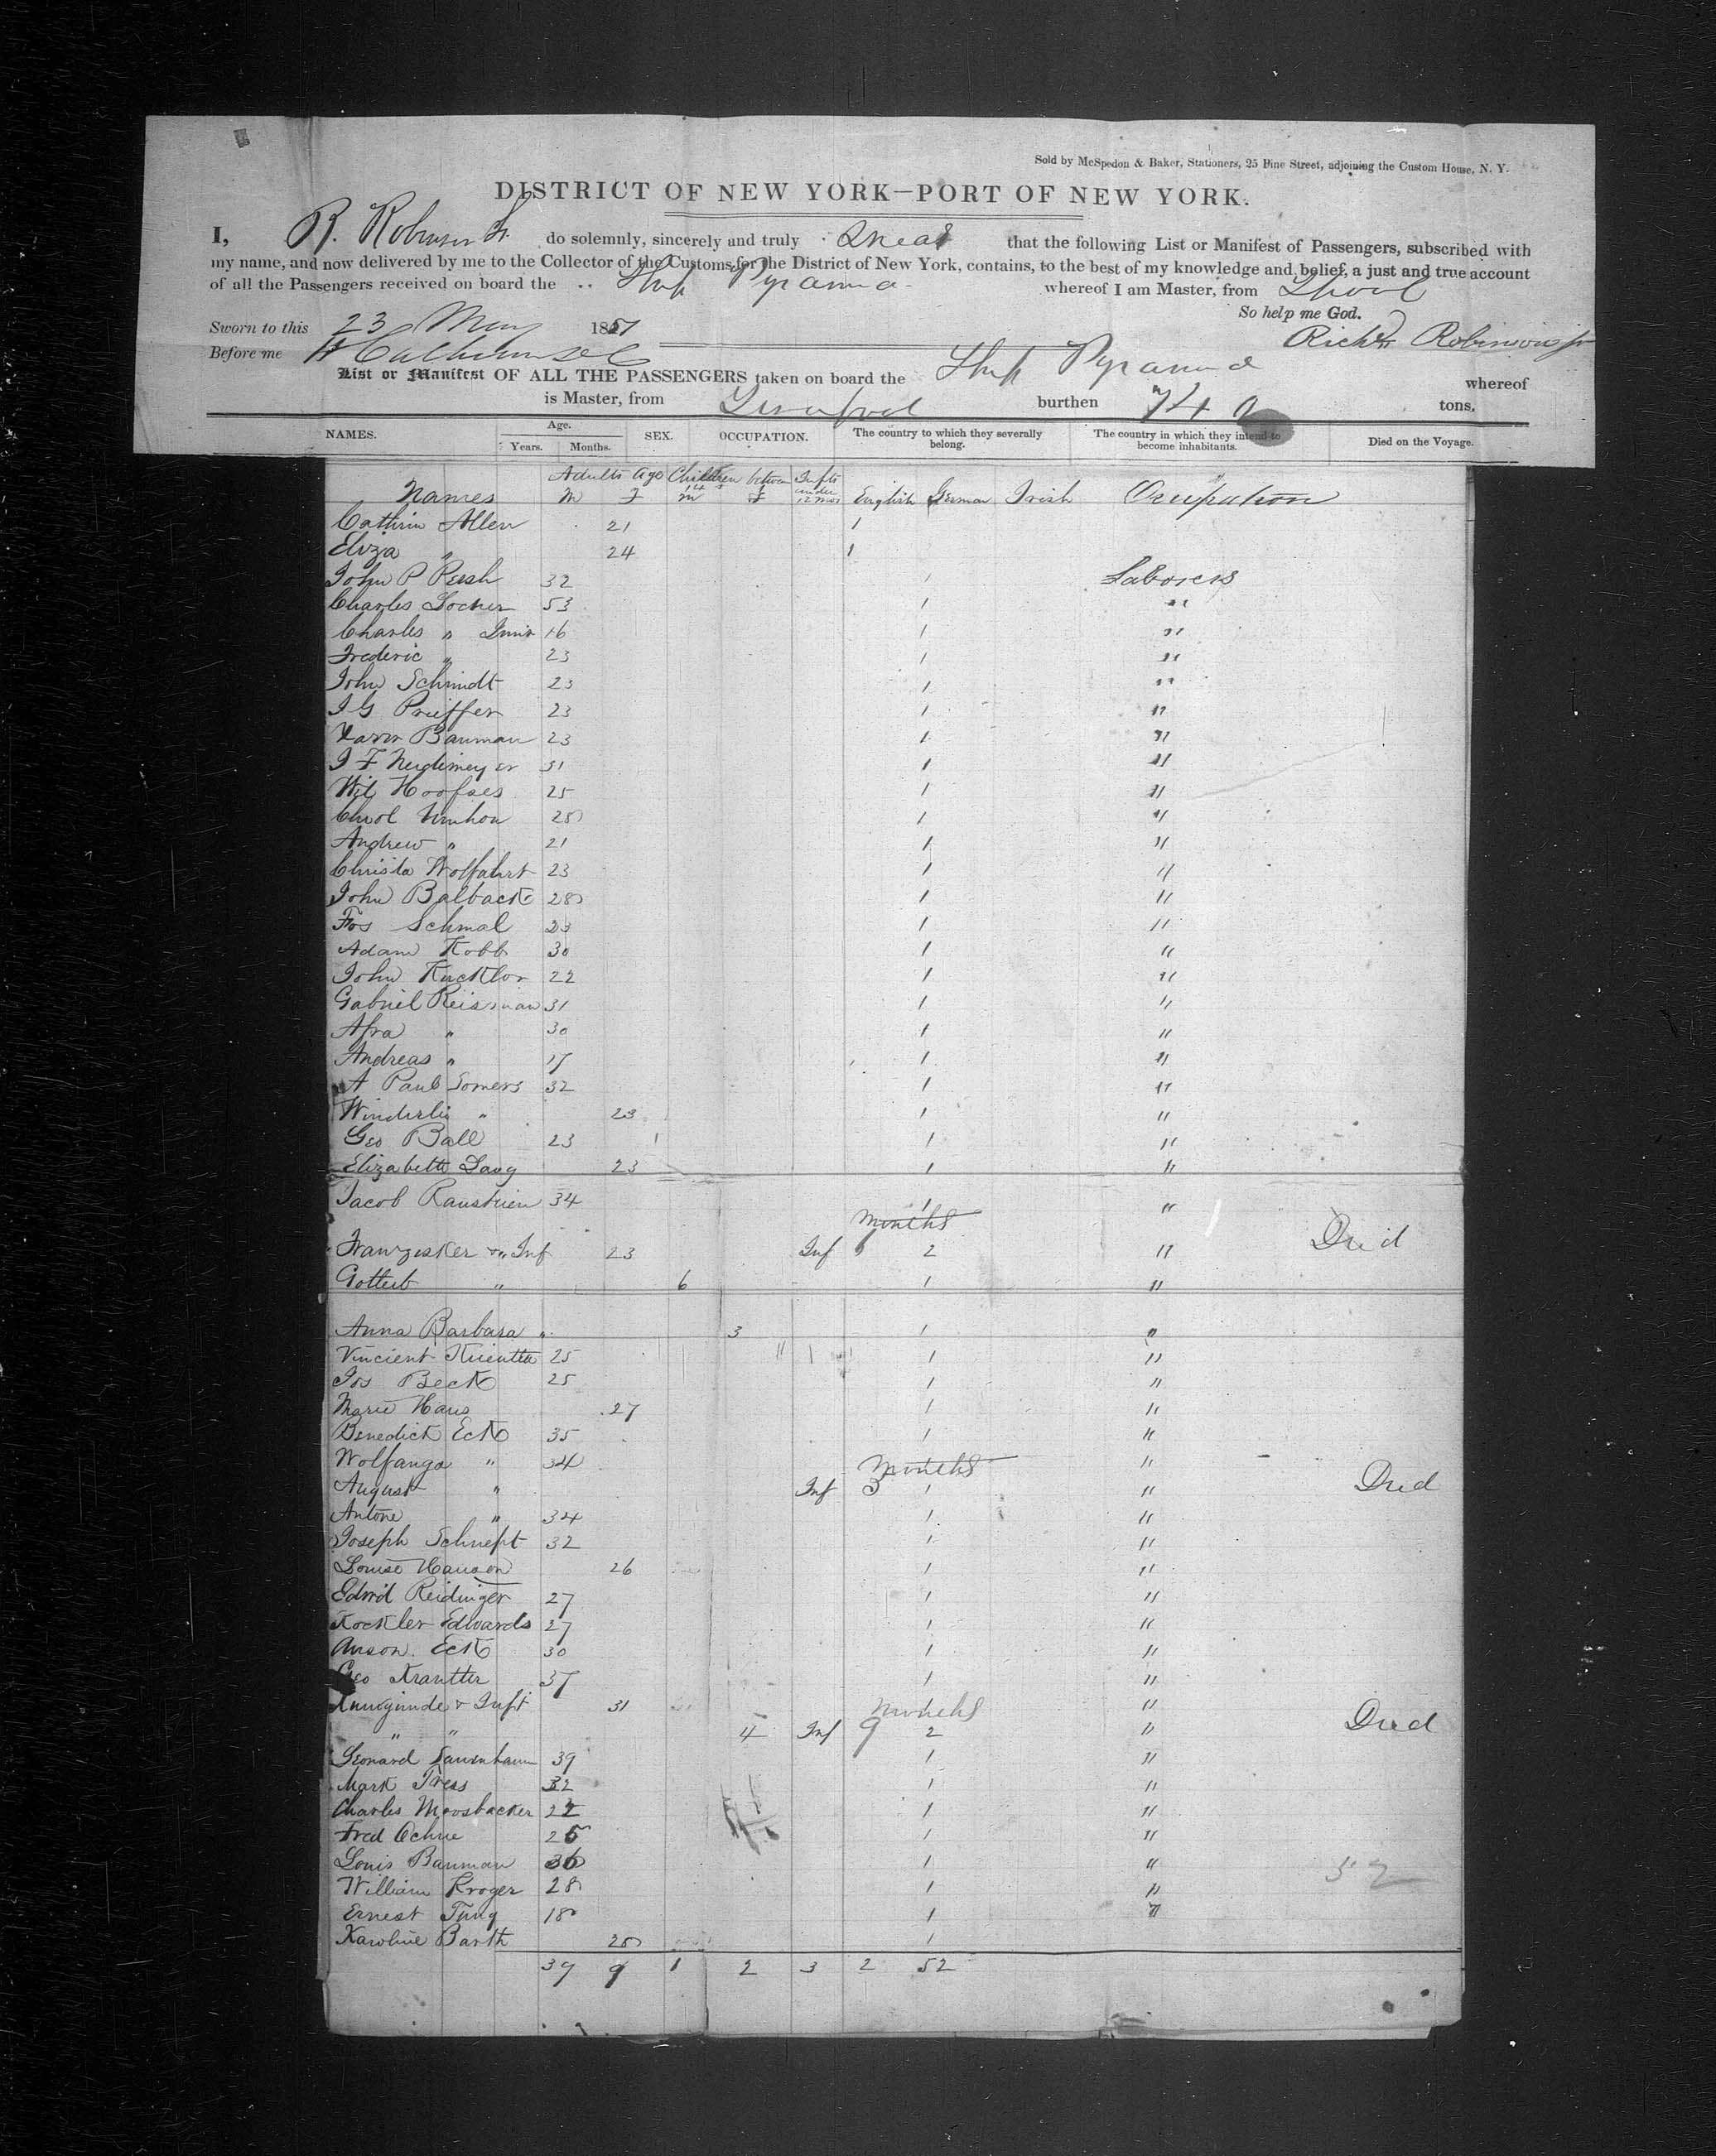 Sold by McSpedon & Baker, Stationers, 25 Pine Street, adjoining the Custom House, N. Y.
DISTRICT OF NEW YORK—PORT OF NEW YORK.
I, R. Robinson Jr. do solemnly, sincerely and truly Swear that the following List or Manifest of Passengers, subscribed with
my name, and now delivered by me to the Collector of the Customs for the District of New York, contains, to the best of my knowledge and belief, a just and true account
of all the Passengers received on board the Ship Pyramid whereof I am Master, from Lpool
So help me God.
Sworn to this 23 May 1851
Richd Robinson jr
Before me
List or Manifest OF ALL THE PASSENGERS taken on board the Ship Pyramid whereof
is Master, from Liverpool burthen 740 tons.
NAMES. Age. Years. Months. SEX. OCCUPATION. The country to which they severally belong. The country in which they intend to become inhabitants. Died on the Voyage.
Names Adults Age M F Children between 1 & 14 M F Infts under 12 mos English German Irish Occupation
Cathrin Allen 21 1
Eliza " 24 1
John P Rush 32 1 Laborers
Charles Locher 53 1 "
Charles " Junr 16 1 "
Frederic " 23 1 "
John Schmidt 23 1 "
J G Prieffer 23 1 "
Bauman 23 1 "
J F 31 1 "
25 1 "
28 1 "
Andrew " 21 1 "
Christa Wolfahrt 23 1 "
John Balback 28 1 "
Fos Schmal 23 1 "
Adam Kobb 30 1 "
John 22 1 "
Gabriel Reisman 31 1 "
Afra " 30 1 "
Andreas " 17 1 "
A Paul Somers 32 1 "
Winderlis " 23 1 "
Geo Ball 23 1 "
Elizabeth Laug 23 1 "
Jacob 34 1 "
months
Franzisker & " Inf 23 Inf 9 2 " Died
Gotleib " 6 1 "
Anna Barbara " 3 1 "
Vincient 25 1 "
Jos Beck 25 1 "
Marie Haus 27 1 "
Benedick Eck 35 1 "
Wolfanga " 34 months "
August " Inf 3 1 " Died
Antone " 34 1 "
Joseph Schneft 32 1 "
Louise Hauson 26 1 "
Edwd Reidinger 27 1 "
Kockler Edwards 27 1 "
Anson Eck 30 1 "
Geo Krautter 37 1 "
Kunogunde & Inft 31 months "
" " 4 Inf 9 2 " Died
Leonard 39 1 "
Mark Tress 32 1 "
Charles Moosbacker 22 1 "
Fred Ochue 25 1 "
Louis Bauman 36 1 " 52
William Kroger 28 1 "
Ernest Tung 18 1 "
Karoline Barth 28 1
39 9 1 2 3 2 52